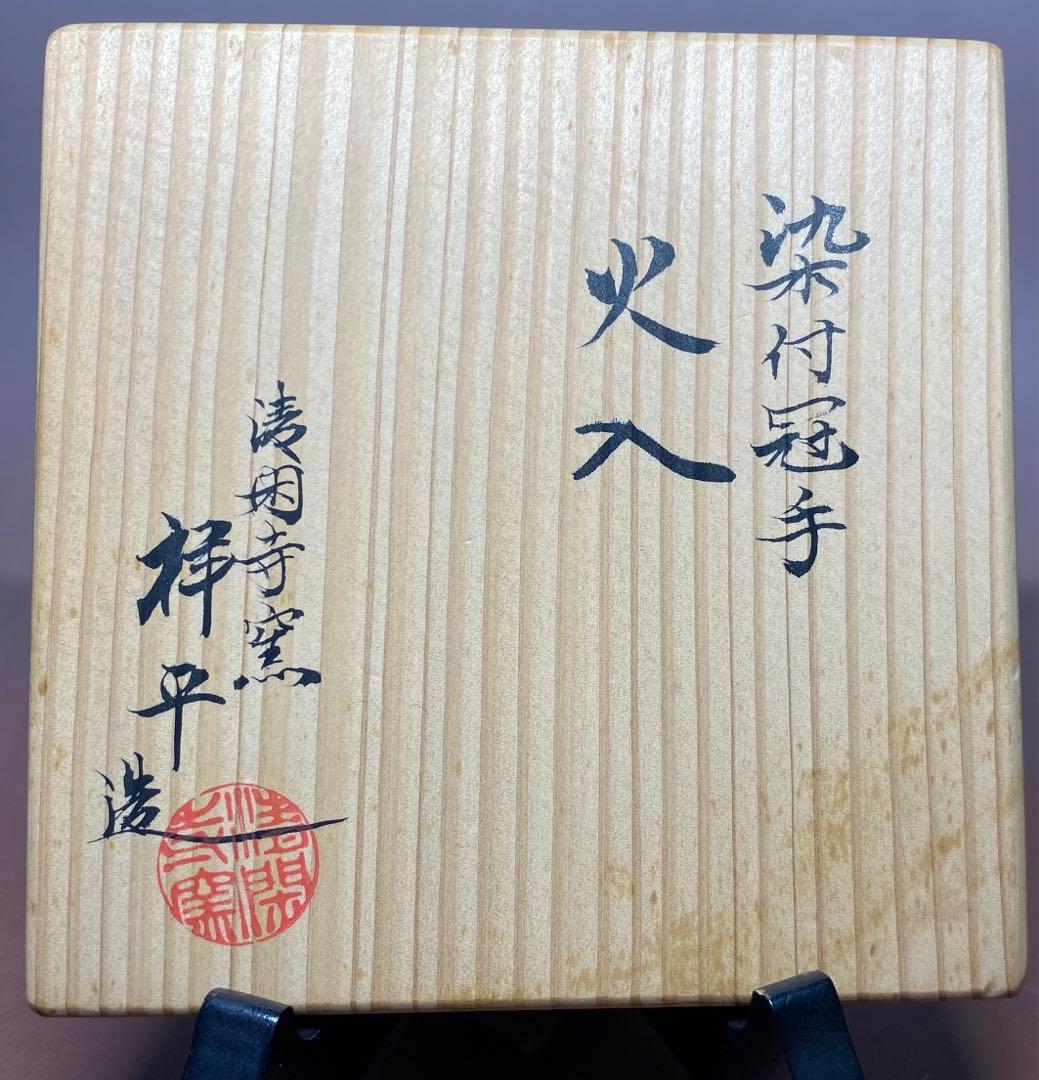 染付冠手
火入
清閑寺窯
祥平造
清閑
寺窯